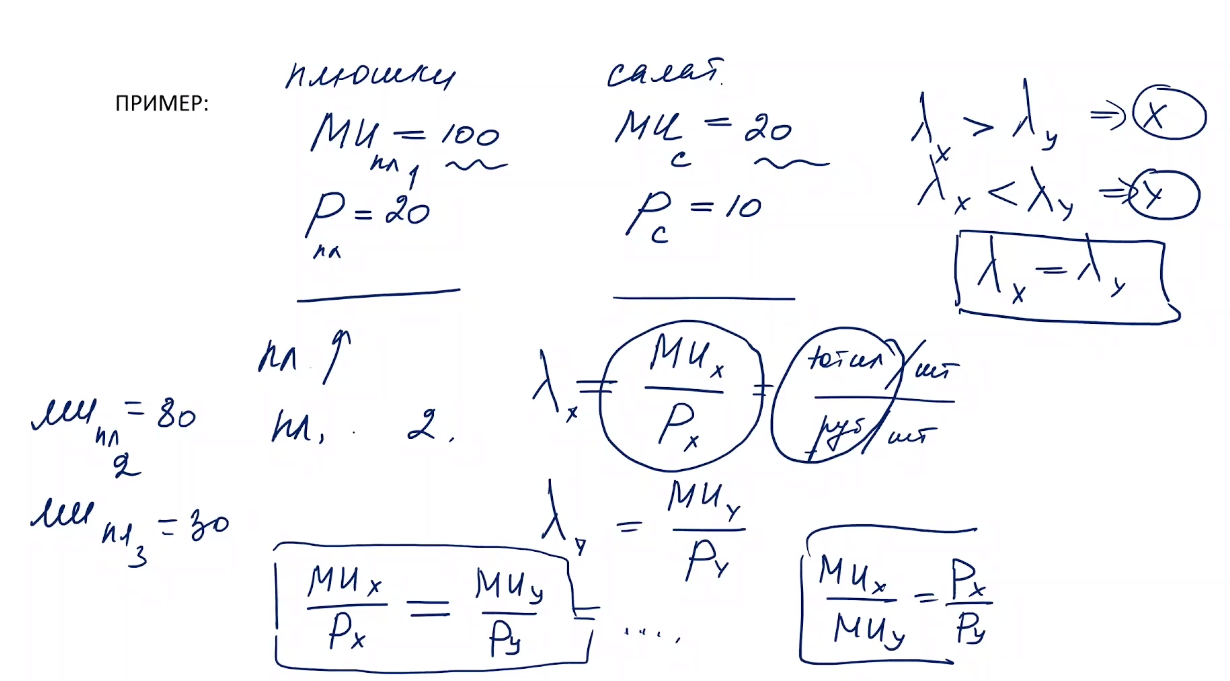 ПРИМЕР:
плюшки
MU пл 1 = 100
P пл = 20
салат.
MU с = 20
P с = 10
λx > λy ⇒ X
λx < λy ⇒ Y
λx = λy
пл. ↑
пл, . 2.
MU пл 2 = 80
MU пл 3 = 30
λx = MUx / Px = ютил/шт / руб/шт
λy = MUy / Py
MUx / Px = MUy / Py = .....
MUx / MUy = Px / Py